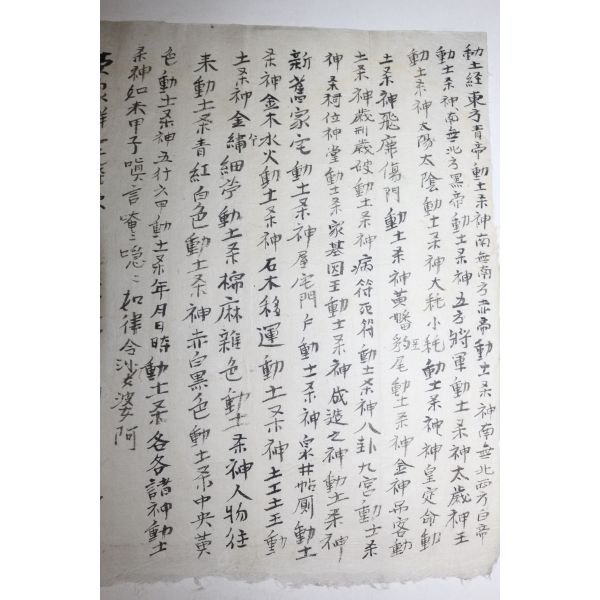 動土経東方青帝動土杀神南無南方赤帝動土杀神南無北西方白帝
動土杀神南無北方黑帝動土杀神五方將軍動土杀神太歲神王
動土杀神太陽太陰動土杀神大耗小耗動土杀神神皇定命動
土杀神飛廉傷門動土杀神黃幡豹尾動土杀神金神吊客動
土杀神歲刑歲破動土杀神病符死符動土杀神八卦九宮動土杀
神杀祠位神堂動土杀家基因王動土杀神成造之神動土杀神
新舊家宅動土杀神屋宅門戶動土杀神泉井帖厠動土
杀神金木水火動土杀神石木移運動土杀神土工土王動
土杀神金繡細 動土杀棉麻雜色動土杀神人物往
来動土杀青紅白色動土杀神赤白黒色動土杀中央黃
色動土杀神五行六甲動土杀年月日時動土杀各各諸神動土
杀神如来甲子嗔言唵〻 〻如律令沙婆阿